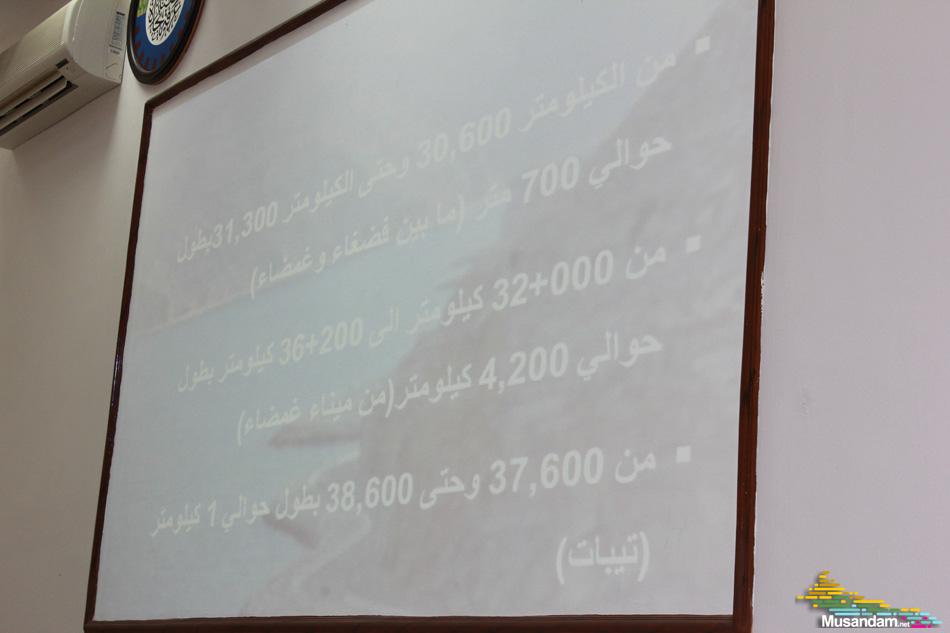 ▪ من الكيلومتر 30,600 وحتى الكيلومتر 31,300بطول
حوالي 700 متر (ما بين فضغاء وغمضاء)
▪ من 000+32 كيلومتر الى 200+36 كيلومتر بطول
حوالي 4,200 كيلومتر(من ميناء غمضاء)
▪ من 37,600 وحتى 38,600 بطول حوالي 1 كيلومتر
(تيبات)
Musandam.net